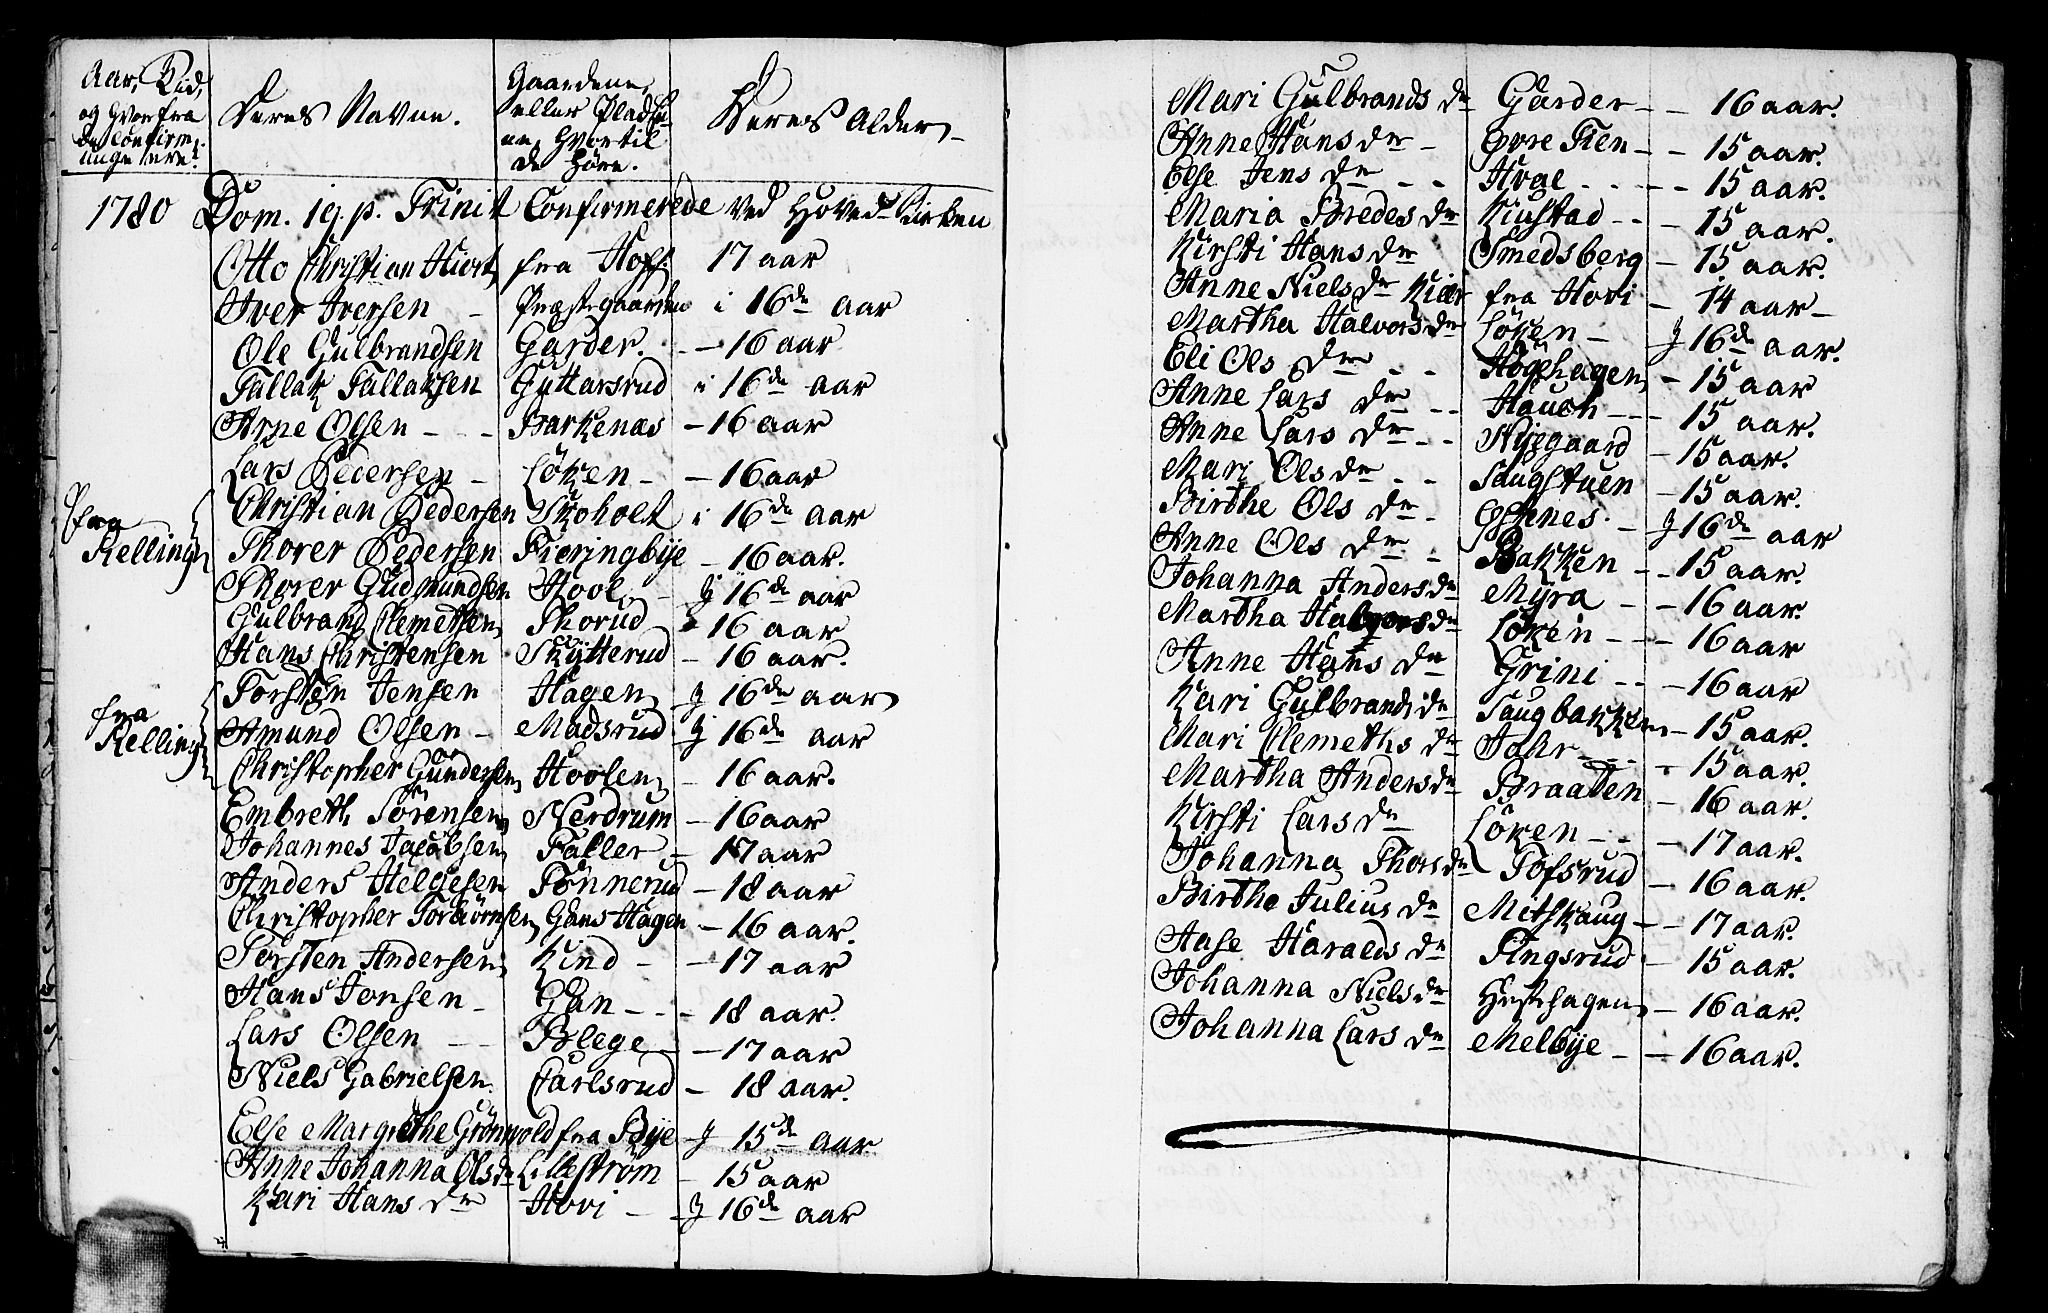 Aar, Tid,
og Hvorfra
de Confirm.
unge ere.
Deres Navne.
Gaardene,
eller Pladse
ne, Hvortil
de Høre.
Deres Alder
1780 Dom. 19. p. Trinit Confirmerede ved Hoved Kirken
Otto Christian Hiort fra Hoff. 17 aar
Iver Iversen - Præstegaarden i 16de aar
Ole Gulbrandsen Garder. - 16 aar
Tallak Tallaksen Guttersrud i 16de aar
Arne Olsen - - - Barkenæs - 16 aar
Lars Pedersen - Löken - - 16 aar
fra Christian Pedersen Skoholt i 16de aar
Relling Thorer Pedersen Fieringbÿe - 16 aar.
Thorer Gudmundsen Hool - J 16de aar
Gulbrand Clemetsen Thorud 16 aar
Hans Christensen Skÿtterud - 16 aar.
Torsten Jensen Hagen J 16de aar
fra Amund Olsen - Madsrud J 16de aar
Relling Christopher Gundersen Hoolen - 16 aar.
Embreth Sörensen Nerdrum - 16 aar
Johannes Jacobsen Faller - 17 aar
Anders Helgesen Tönnerud - 18 aar
Christopher Torbiörnsen Gans Hagen - 16 aar.
Torsten Andersen Kind - - 17 aar
Hans Jonsen - Gan - - - 18 aar.
Lars Olsen - - Blege - 17 aar
Niels Gabrielsen. Carlsrud - 18 aar.
Else Margrethe Grönvold fra Bÿe J 15de aar
Anne Johanna Olsdr Lilleström - 15 aar
Kari Hans dr Hovi - J 16de aar
Mari Gulbrands dr Garder - - 16 aar.
Anne Hans dr - Øvre Fien - - 15 aar.
Else Jens dr - - Hval - - - - 15 aar.
Maria Bredes dr Kiustad - - - 15 aar.
Kirsti Hans dr Smedsberg - 15 aar.
Anne Niels dr Kiær fra Hovi - 14 aar -
Martha Halvors dr Löken - J 16de aar.
Eli Ols dr - - Högehagen - 15 aar
Anne Lars dr - - Hauch - - - 15 aar.
Anne Lars dr - - Nÿegaard - 15 aar.
Mari Ols dr - - Saugstuen - 15 aar.
Birthe Ols dr - Egnes. - J 16de aar
Anne Ols dr - Bakken - - 15 aar.
Johanna Anders dr Mÿra - - 16 aar.
Martha Halvors dr Löken - - - 16 aar
Anne Hans dr Grini - - - 16 aar
Kari Gulbrands dr Saugbakken - 15 aar.
Mari Clemeths dr Johr - - - 15 aar.
Martha Anders dr Braaten - 16 aar.
Kirsti Lars dr Löken - - - 17 aar.
Johanna Thors dr Tofsrud - 16 aar.
Birthe Julius dr Mitskaug - - 17 aar.
Aase Haraels dr Tingsrud - 15 aar.
Johanna Niels dr Hestehagen - 16 aar.
Johanna Lars dr Melbÿe - - 16 aar.